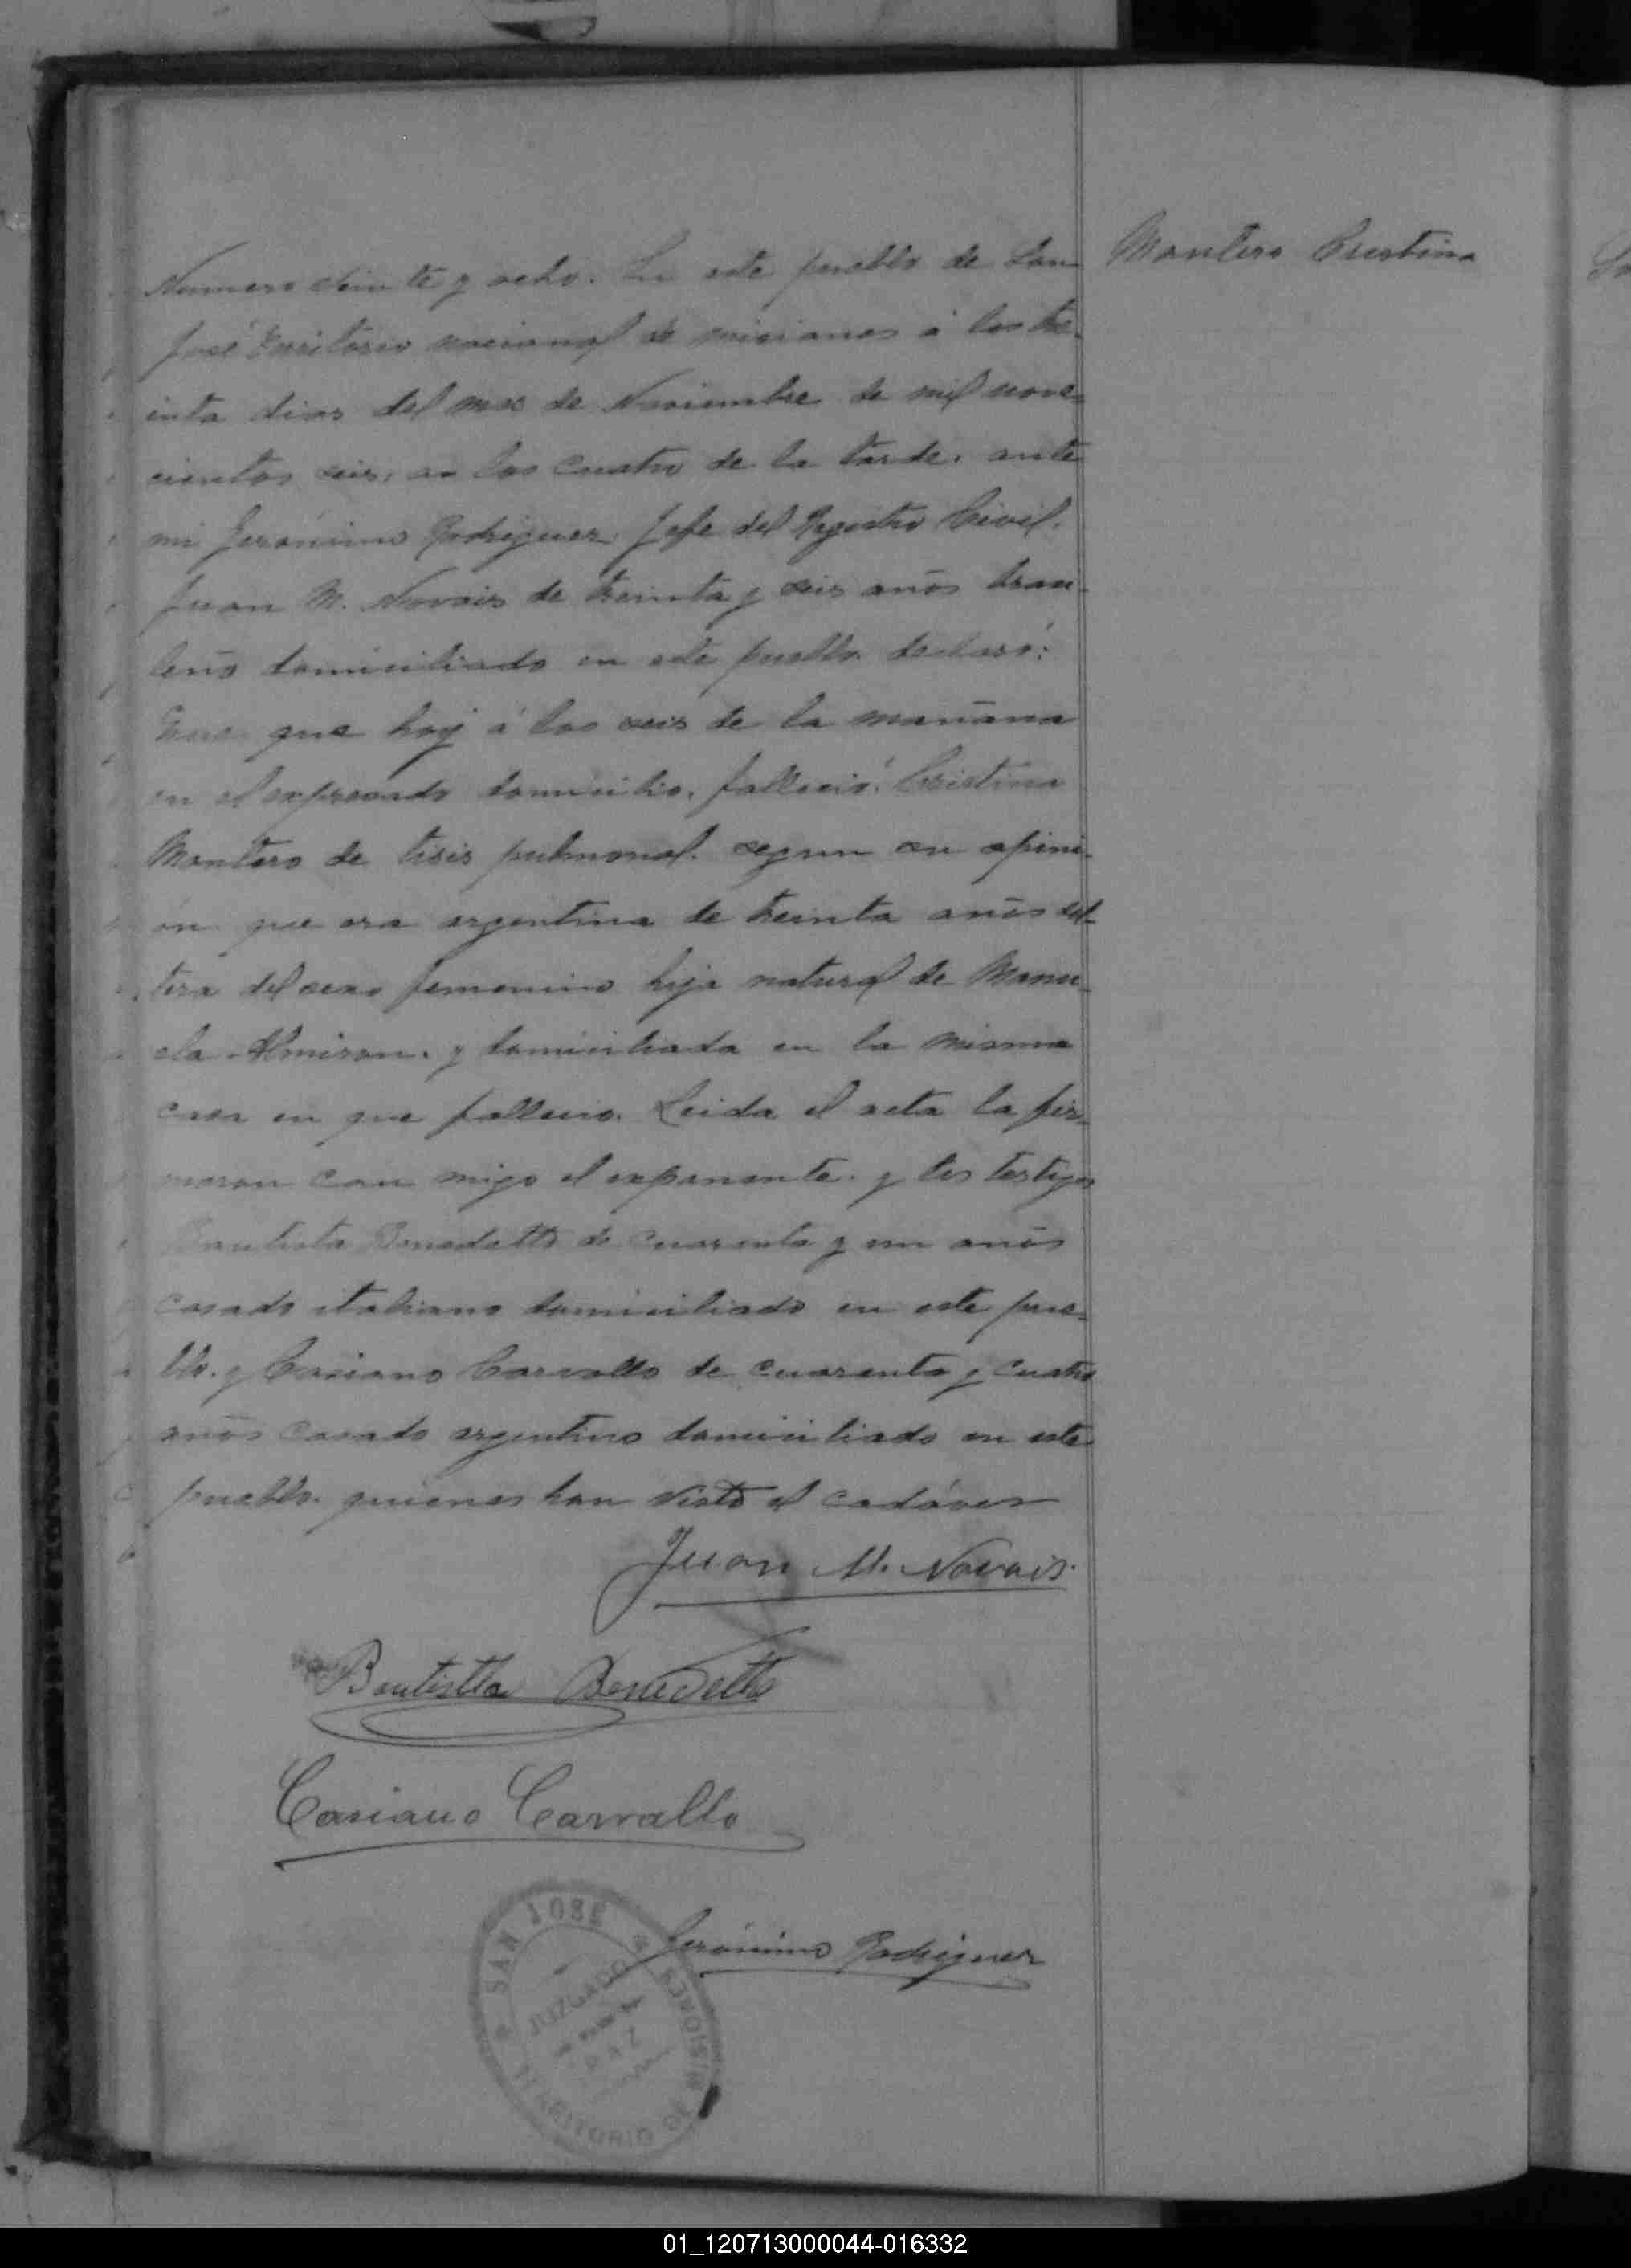 Montero Cristina
Número veinte y ocho. En este pueblo de San
José Territorio nacional de misiones á los tre-
inta dias del mes de Noviembre de mil nove-
cientos seis, a las cuatro de la tarde. ante
mi Jerónimo Rodriguez Jefe del Registro Civil.
Juan M. Novais de treinta y seis años brasi-
leño domiciliado en este pueblo. declaró:
que hoy á las seis de la mañana
en el expresado domicilio. falleció. Cristina
Montero de tisis pulmonal. segun su opini-
ón que era argentina de treinta años sol-
tera del sexo femenino hija natural de Manu-
ela Almiron. y domiciliada en la misma
casa en que fallecio. Leida el acta la fir-
maron con migo el exponente. y los testigos
Bautista Benedetto de cuarenta y un años
casado italiano domiciliado en este pue-
blo. y Casiano Carvallo de cuarenta y cuatro
años casado argentino domiciliado en este
pueblo. quienes han visto el cadáver
Juan M. Novais.
Bautistta Benedetto
Casiano Carvallo
Jerónimo Rodriguez
SAN JOSE
JUZGADO
PAZ
TERRITORIO DE MISIONES
01_120713000044-016332